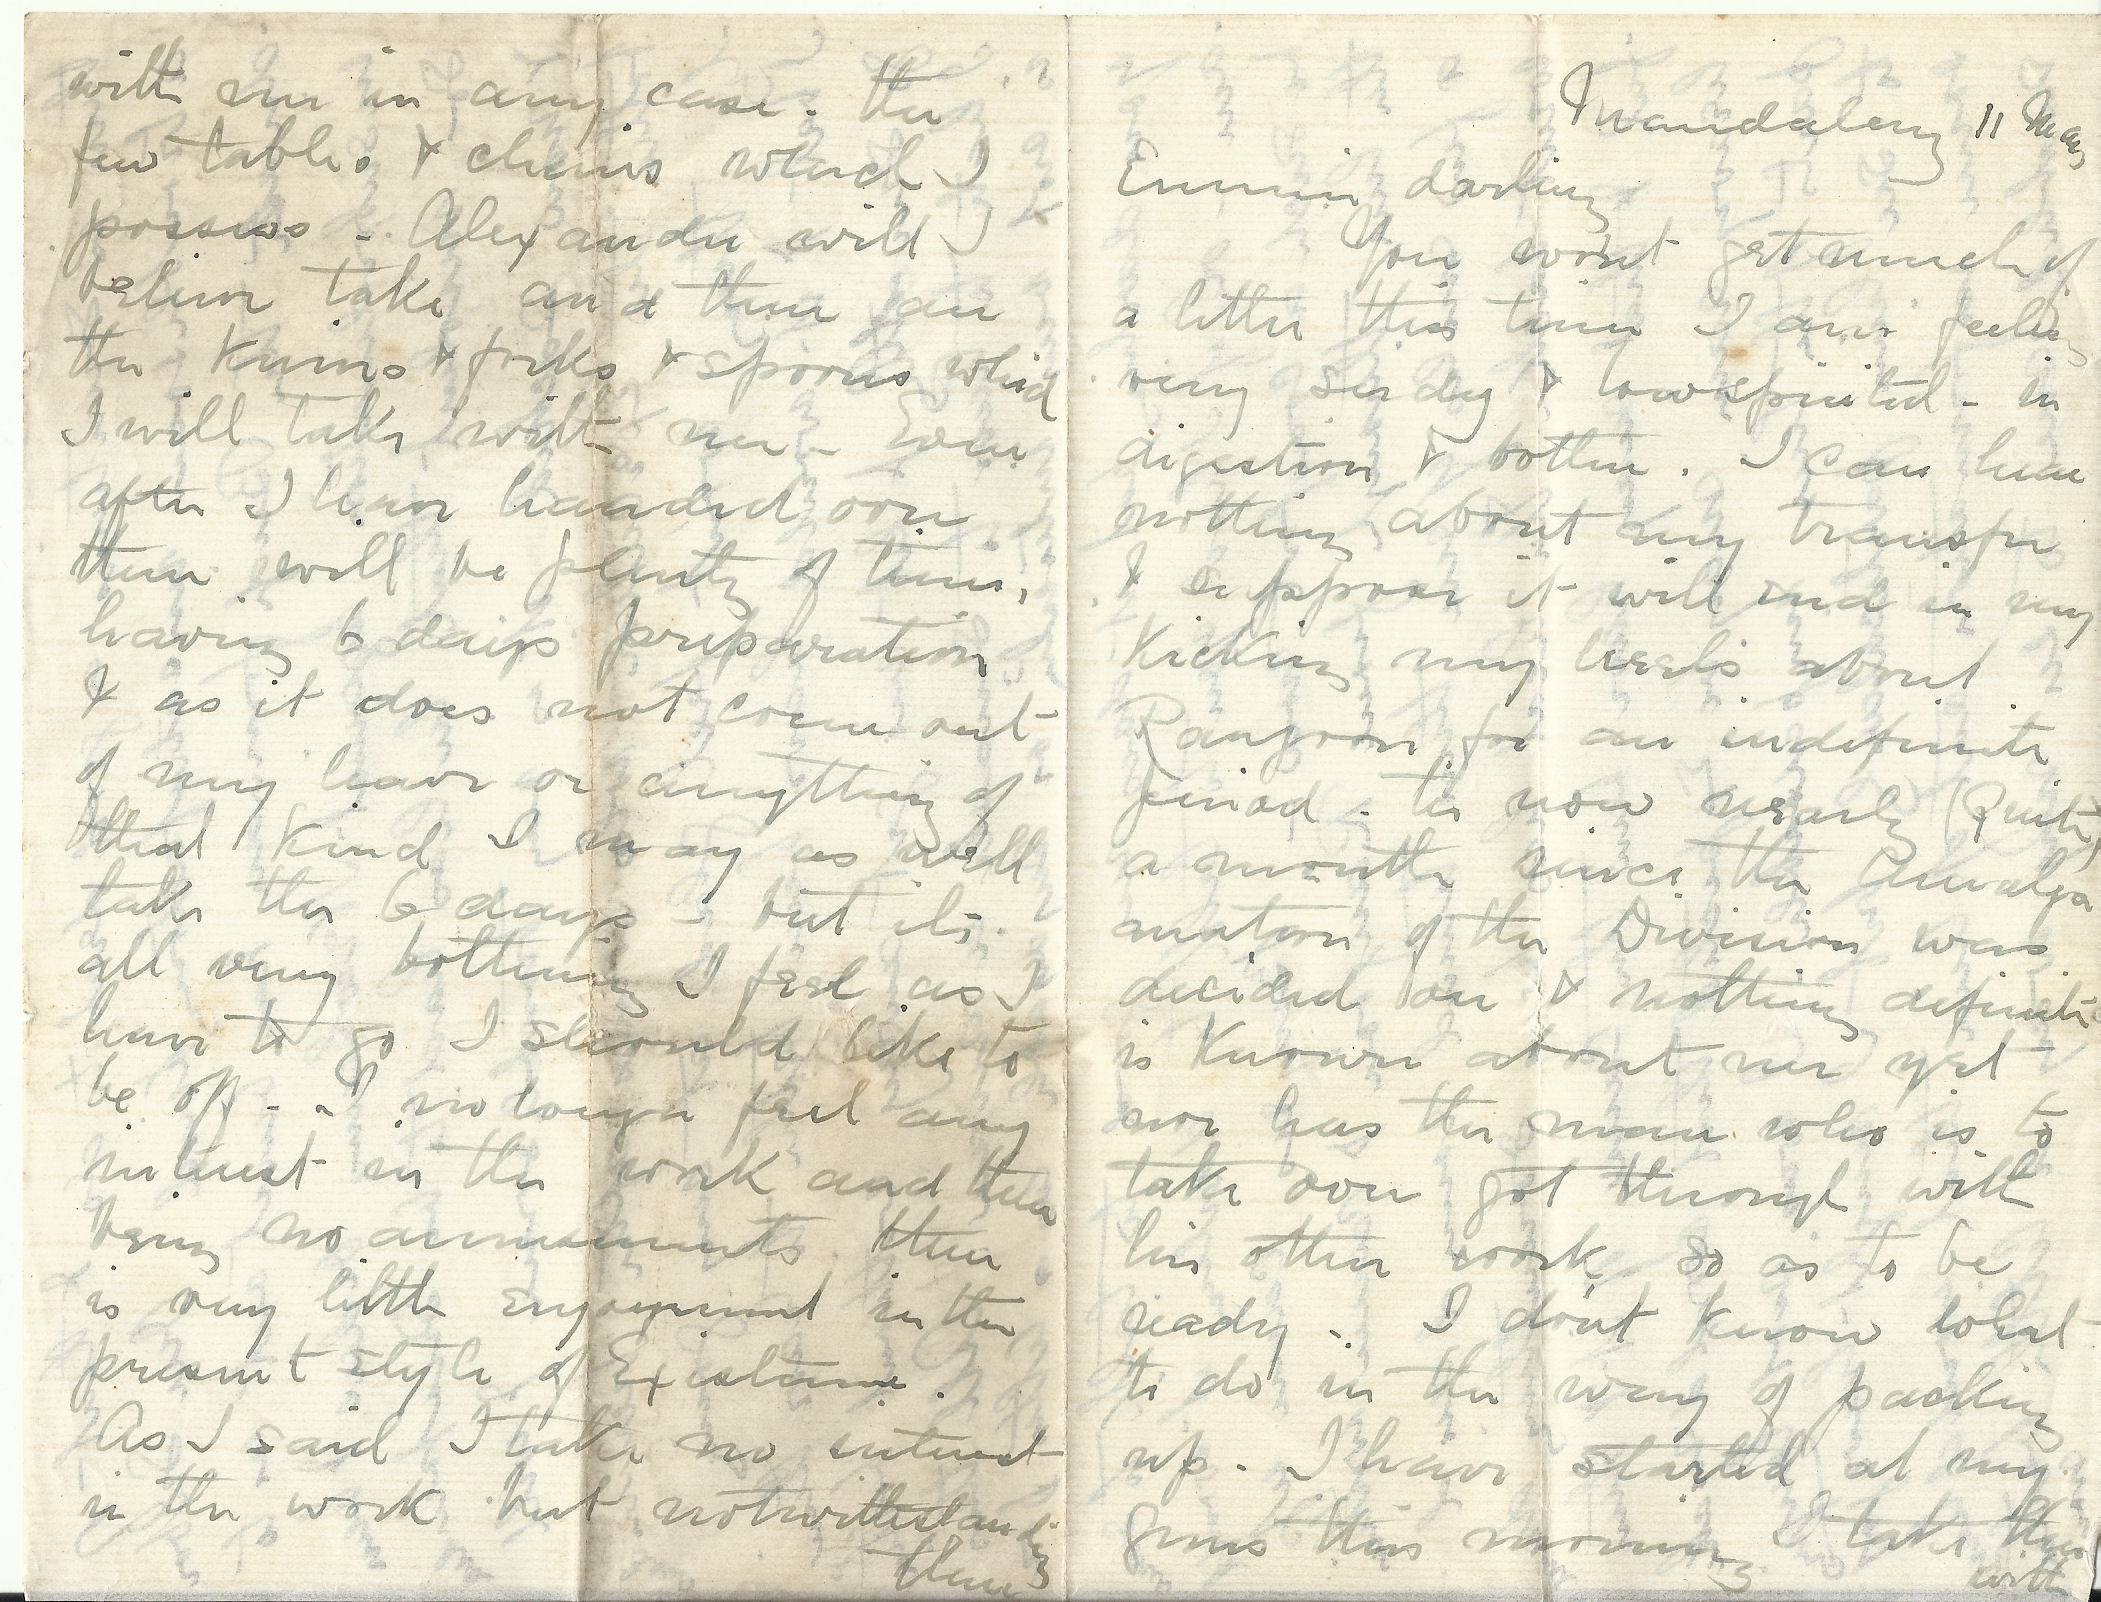 Mandalay 11 May
Emmie darling
You wont get much of
a letter this time I am feeling
very seedy & lowspirited - in
digestion & bother. I can hear
nothing about my transfer
& suppose it will end in my
kicking my heels about
Rangoon for an indefinite
period - tis now nearly (Quite)
a month since the Amalga
mation of the Division was
decided on & nothing definite
is known about me yet
nor has the man who is to
take over got through with
his other work so as to be
ready - I dont know what
to do in the way of packing
up. I have started at my
guns this morning I take them
with
with me in any case. the
few tables & chairs which I
possess - Alexander will I
believe take and there are
the knives & forks & spoons which
I will take with me - Even
after I have handed over
there will be plenty of time,
having 6 days preparation
& as it does not come out
of my leave or anything of
that kind I may as well
take the 6 days - but its
all very bothering I feel as I
have to go I should like to
be off - I no longer feel any
interest in the work and there
being no amusements there
is very little enjoyment in the
present style of Existence.
As I said I take no interest
in the work but notwithstanding
there